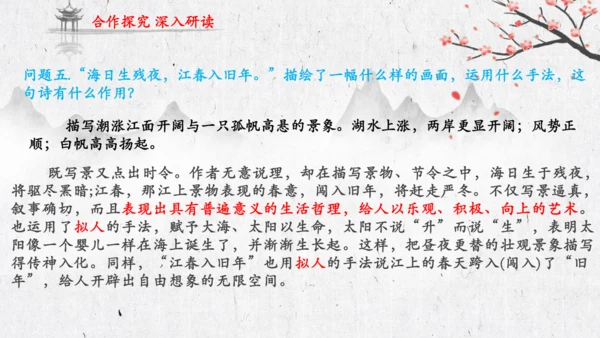 合作探究 深入研读
问题五.“海日生残夜，江春入旧年。”描绘了一幅什么样的画面，运用什么手法，这
句诗有什么作用？
描写潮涨江面开阔与一只孤帆高悬的景象。湖水上涨，两岸更显开阔；风势正
顺；白帆高高扬起。
既写景又点出时令。作者无意说理，却在描写景物、节令之中，海日生于残夜，
将驱尽黑暗;江春，那江上景物表现的春意，闯入旧年，将赶走严冬。不仅写景逼真，
叙事确切，而且表现出具有普遍意义的生活哲理，给人以乐观、积极、向上的艺术。
也运用了拟人的手法，赋予大海、太阳以生命，太阳不说“升”而说“生”，表明太
阳像一个婴儿一样在海上诞生了，并渐渐生长起。这样，把昼夜更替的壮观景象描写
得传神入化。同样，“江春入旧年”也用拟人的手法说江上的春天跨入(闯入)了“旧
年”，给人开辟出自由想象的无限空间。